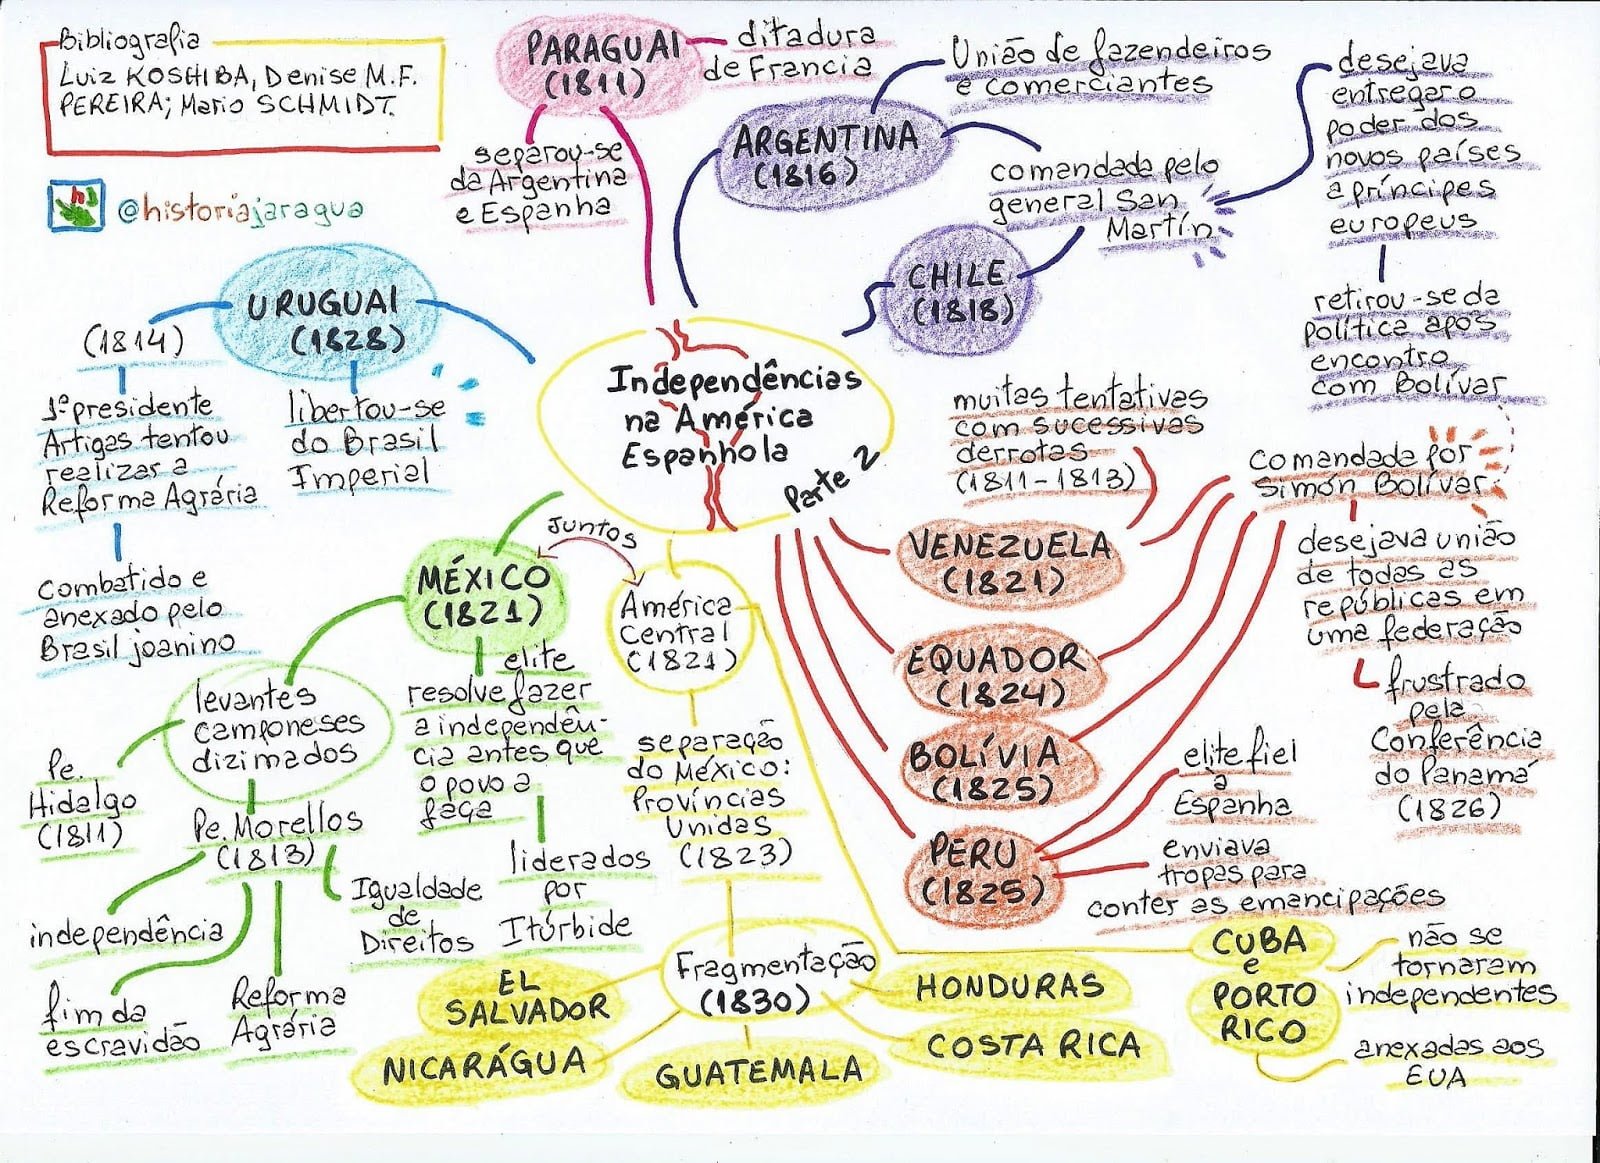 Bibliografia
Luiz KOSHIBA, Denise M.F.
PEREIRA; Mario SCHMIDT.
@historiajaragua
PARAGUAI
(1811)
ditadura
de Francia
separou-se
da Argentina
e Espanha
ARGENTINA
(1816)
União de fazendeiros
e comerciantes
comandada pelo
general San
Martín
CHILE
(1818)
desejava
entregar o
poder dos
novos países
a príncipes
europeus
retirou-se da
política após
encontro
com Bolívar
URUGUAI
(1828)
(1814)
1º presidente
Artigas tentou
realizar a
Reforma Agrária
combatido e
anexado pelo
Brasil joanino
libertou-se
do Brasil
Imperial
Independências
na América
Espanhola
Parte 2
muitas tentativas
com sucessivas
derrotas
(1811-1813)
VENEZUELA
(1821)
EQUADOR
(1824)
BOLÍVIA
(1825)
PERU
(1825)
Comandada por
Simón Bolívar
desejava união
de todas as
repúblicas em
uma federação
frustrado
pela
Conferência
do Panamá
(1826)
elite fiel
à
Espanha
enviava
tropas para
conter as emancipações
MÉXICO
(1821)
Juntos
América
Central
(1821)
levantes
camponeses
dizimados
Pe.
Hidalgo
(1811)
Pe. Morellos
(1813)
independência
fim da
escravidão
Reforma
Agrária
Igualdade
de
Direitos
elite
resolve fazer
a independên-
cia antes que
o povo a
faça
liderados
por
Itúrbide
separação
do México:
Províncias
Unidas
(1823)
Fragmentação
(1830)
EL
SALVADOR
NICARÁGUA
GUATEMALA
HONDURAS
COSTA RICA
CUBA
e
PORTO
RICO
não se
tornaram
independentes
anexadas aos
EUA